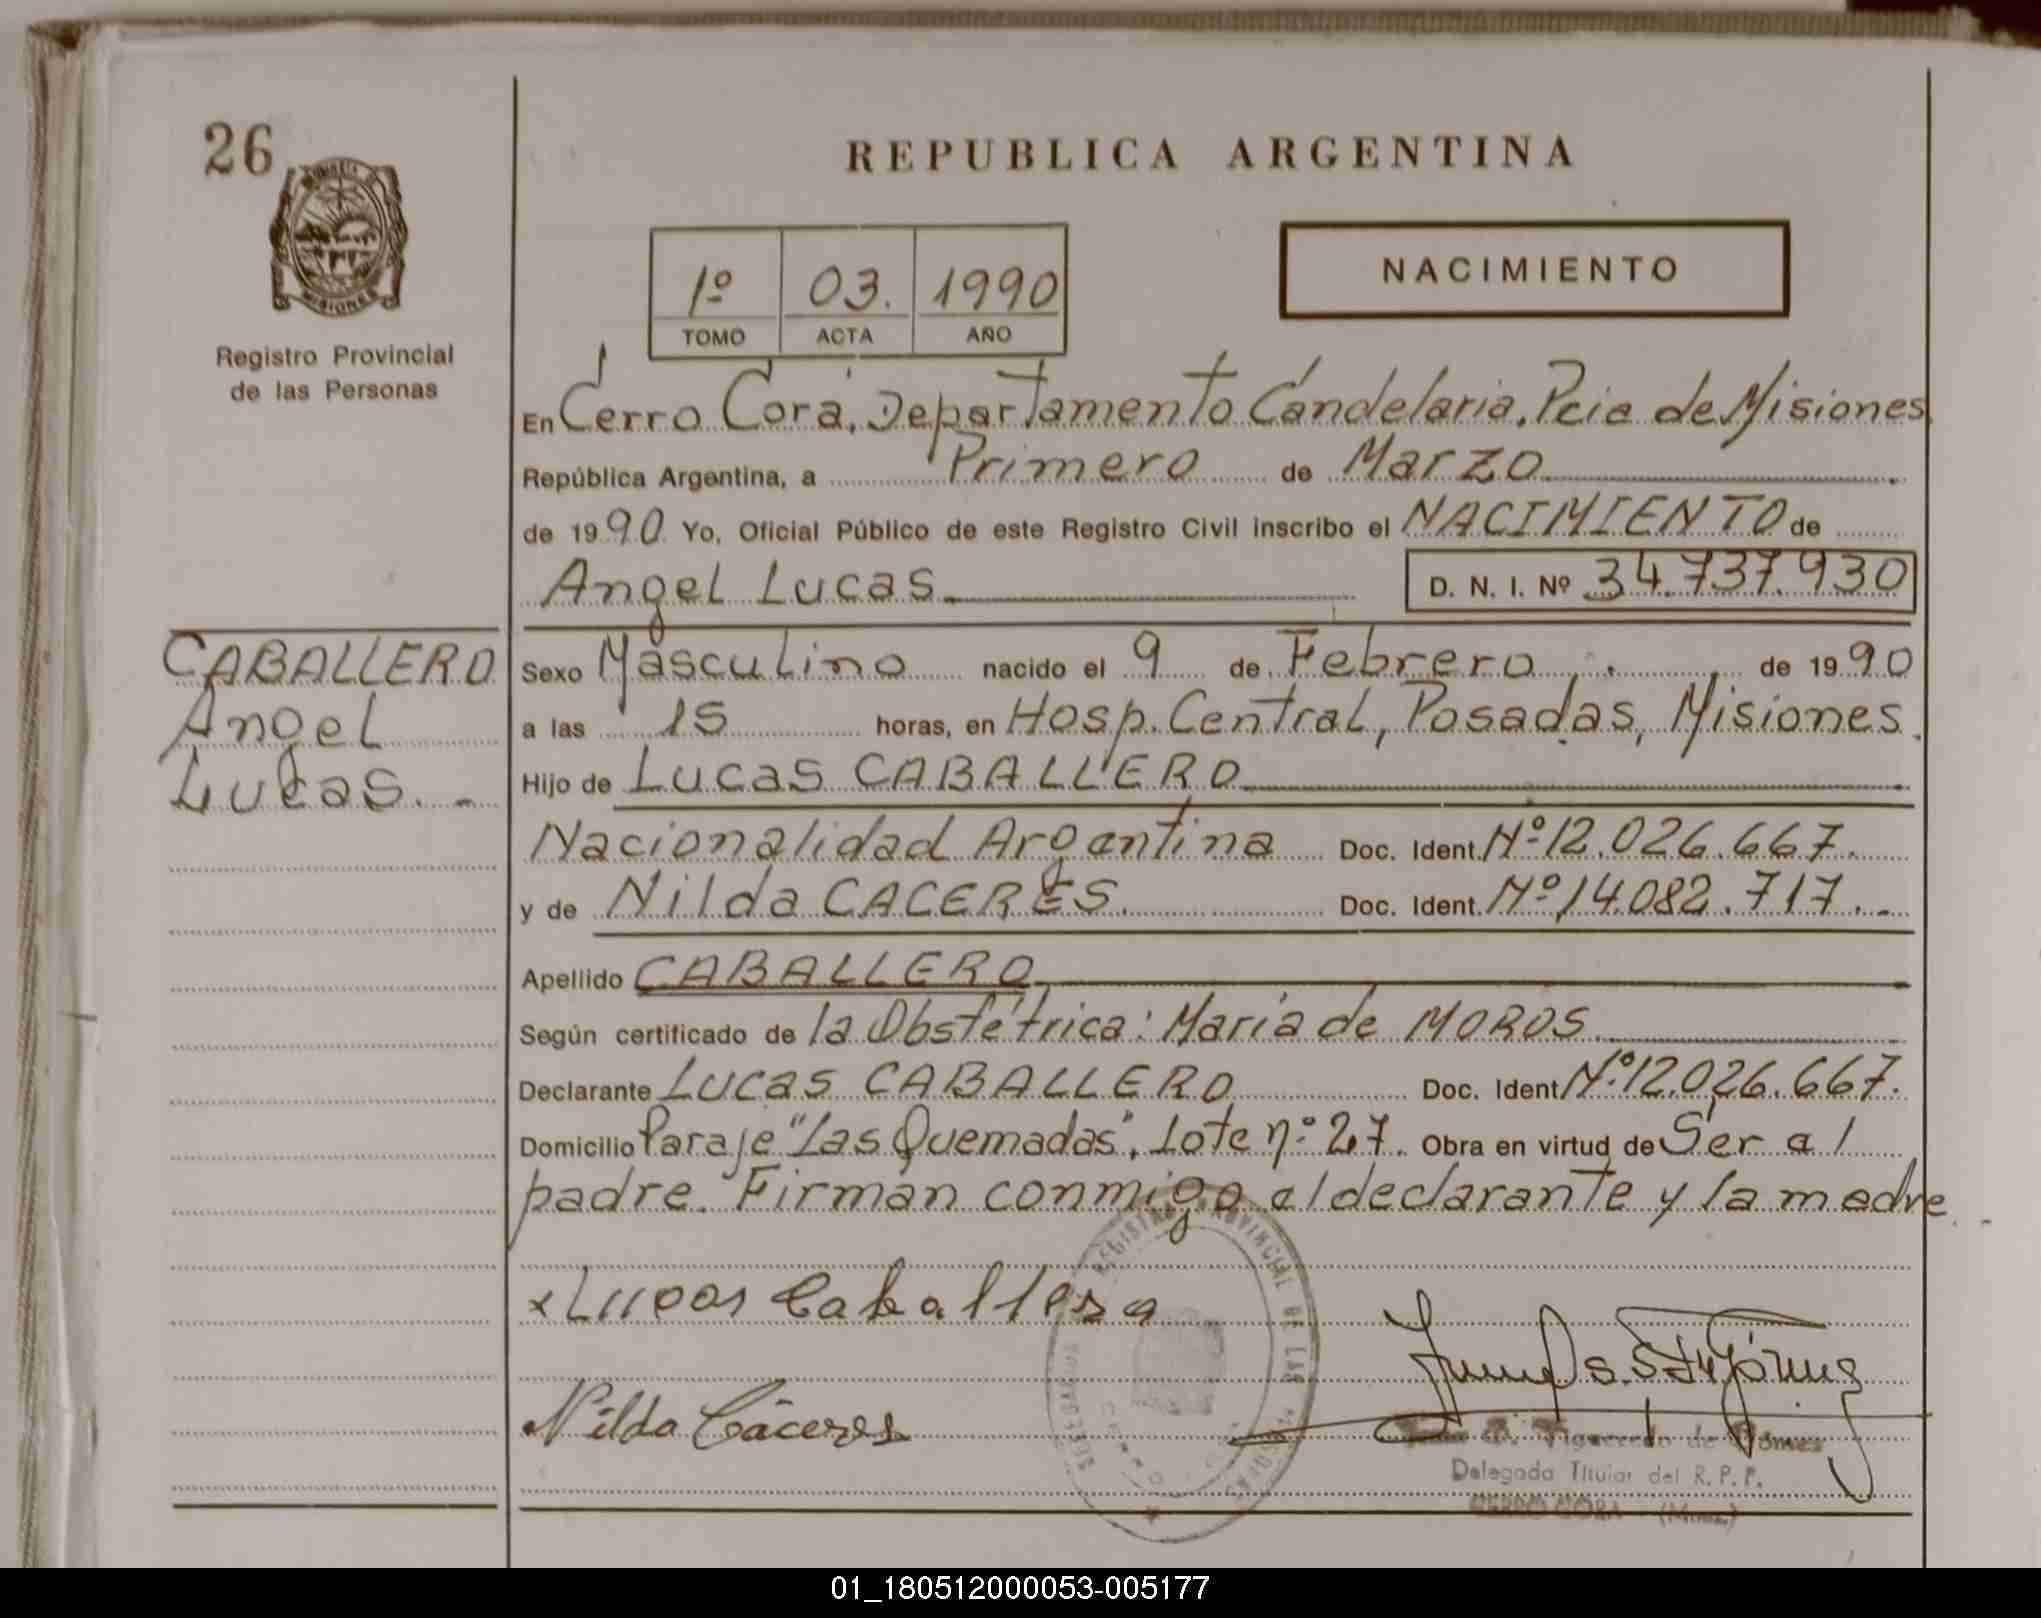 26
REPUBLICA ARGENTINA
MISIONES
Registro Provincial
de las Personas
1º 03. 1990
TOMO ACTA AÑO
NACIMIENTO
En Cerro Corá, Departamento Candelaria, Pcia de Misiones
República Argentina, a Primero de Marzo
de 1990 Yo, Oficial Público de este Registro Civil inscribo el NACIMIENTO de
Angel Lucas. D. N. I. Nº 34.737.930
CABALLERO
Angel
Lucas. -
Sexo Masculino nacido el 9 de Febrero de 1990
a las 15 horas, en Hosp. Central, Posadas, Misiones.
Hijo de Lucas CABALLERO
Nacionalidad Argentina Doc. Ident. Nº 12.026.667.
y de Nilda CACERES. Doc. Ident. Nº 14.082.717. -
Apellido CABALLERO
Según certificado de la Obstétrica: María de MOROS
Declarante Lucas CABALLERO Doc. Ident Nº 12.026.667.
Domicilio Paraje "Las Quemadas", Lote nº 27. Obra en virtud de Ser al
padre. Firman conmigo el declarante y la madre. -
x Lucas Caballero
Nilda Cáceres
REGISTRO PROVINCIAL DE LAS PERSONAS
Figueredo de Gómez
Delegada Titular del R. P. P.
CERRO CORA (Mnes.)
01_180512000053-005177